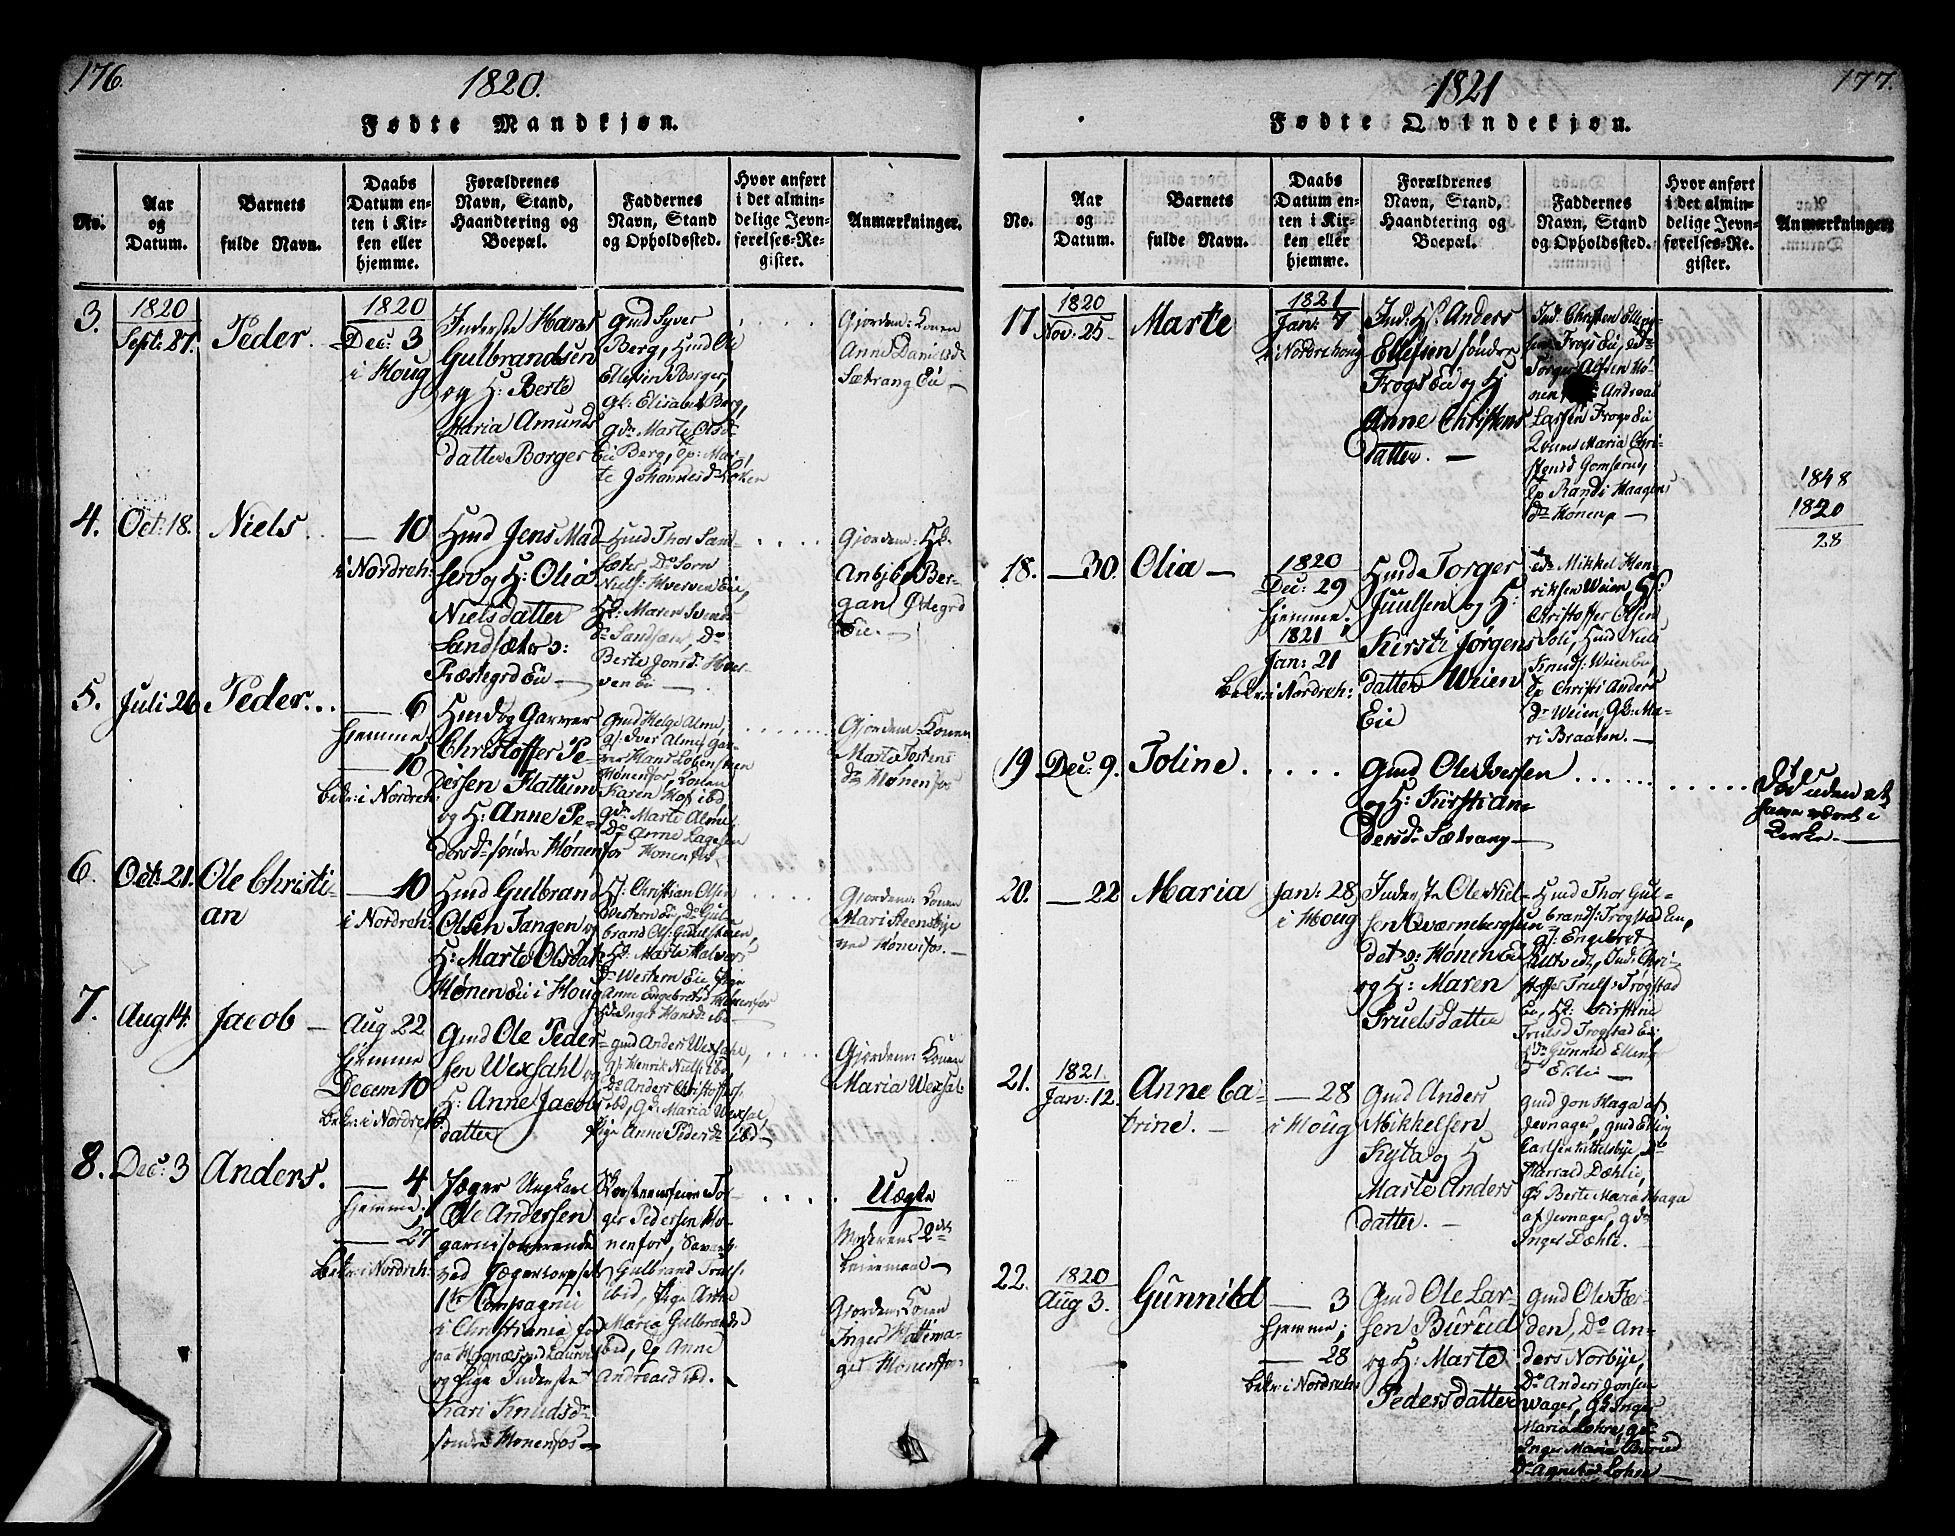 176.
1820.
Fødte Mandkjøn.
No.
Aar
og
Datum.
Barnets
fulde Navn.
Daabs
Datum en-
ten i Kir-
ken eller
hjemme.
Forældrenes
Navn, Stand,
Haandtering og
Boepæl.
Faddernes
Navn, Stand
og Opholdssted.
Hvor anført
i det almin-
delige Jevn-
førelses-Re-
gister.
Anmærkninger.
3.
1820
Sept: 27.
Peder.
1820
Dec: 3
i Houg
Inderste Hans
Gulbrandsen
og H: Berte
Maria Amunds
datter Borger Eie
Gmd Syver
Berg, Hmd Ole
Ellefsen Borger,
gk: Elisabet Berg,
gdr Marte Olsdr
Berg, Ep: Mar-
te Johannesd Loken
Gjordem: Konen
Anne Danielsdr
Sætrang Eie —
4.
Oct: 18.
Niels
— 10
i Nordreh:
Hmd Jens Mad-
sen og H: Olia
Nielsdatter
Sandsæter v:
Præstegrd Eie —
Hmd Thor Sand-
sæter, Do Sørn
Niels: Hverven Eie,
Hk: Maren Svends
dr Sandsæter, Do
Berte Jonsdr Hver-
ven Eie —
Gjordem: Hk:
Anbjør Ber-
gan Ødegrd
Eie. —
5.
Juli 26
Peder...
— 6
hjemme
— 10
bekr: i Nordreh:
Hmd og Garver
Christoffer Pe-
dersen Flattum
og H: Anne Pe-
dersdr søndre Hønenfos
Gmd Helge Alme,
gf: Iver Alme, Gar-
ver Hans
Hønenfos, Konen
Karen Hof ibd,
gdr Marte Alme,
Do Anne Lagesen
Hønenfos
Gjordem: Konen
Marte Tostens
dr Hønenfos
6.
Oct: 21.
Ole Christi-
an
— 10
i Nordreh:
Hmd Gulbrand
Olsen Tangen og
H: Marte Olsdat-
Hønen Eie i Houg
Hf: Christian Olsen
Western Eie, Do Gul-
brand Ols:
Hk: Marte Halvors
dr Western Eie, Pige
Anne Engebretsdr Hønenfos
Inger Hansdr ibd —
Gjordem: Konen
Mari Steensbye
ved Hønenfos. —
7.
Aug 14.
Jacob —
Aug 22
hjemme
Decem 10
bekr: i Nordreh:
Gmd Ole Peder-
sen Wexsahl og
H: Anne Jacobs
datter
Gmd Anders Wexsahl,
gf: Henrik Niels: ibd
Do Anders Christoffers:
ibd, Gk: Maria Wexsal,
Pige Anne Pedersdr ibd —
Gjordem: Konen
Maria Wexsal
8.
Dec: 3
Anders.
— 4
hjemme.
— 27
bekr: i Nordreh:
Jæger Ungkarl
Ole Andersen
garnisonerende
ved Jægercorpset
1te Compagni
i Christiania fød
paa Hognæs ved Laurvig
og Pige Inderste
Kari Knudsdr
søndre Hønenfos —
Skorsteensfeier Tor-
ger Pedersen Hø-
nenfos,
Gulbrand Truls:
ibid, Pige Anne
Maria Gulbrandsdr
ibid, Ep Anne
Andreasd ibd.
Uægte
Moderens 2det
Leiermaal —
Gjordem Konen
Inger Hattema-
ger Hønenfos.
177.
1821
Fødte Qvindekjøn.
No.
Aar
og
Datum.
Barnets
fulde Navn.
Daabs
Datum en-
ten i Kir-
ken eller
hjemme.
Forældrenes
Navn, Stand,
Haandtering og
Boepæl.
Faddernes
Navn, Stand
og Opholdssted.
Hvor anført
i det almin-
delige Jevn-
førelses-Re-
gister.
Anmærkninger
17.
1820
Nov: 25.
Marte
1821
Jan: 7
i Nordrehoug
Ind: Hf: Anders
Ellefsen søndre
Frogs Eie og H:
Anne Christens
datter. —
Ind: Christen Ellef-
sen Frogs Eie, do
Torger Alfsen Hø-
nen, Andreas
Larsen Frogs Eie
Konen Maria Chri-
stensd Gomserud,
Ep Randi Haagens
dr Hønen —
1848
1820
28
18.
— 30.
Olia —
1820
Dec: 29
hjemme.
1821
Jan: 21
bekr: i Nordreh:
Hmd Torger
Juulsen og H:
Kirsti Jørgens
datter Weien
Eie
Mikkel Hen-
riksen Weien, Hf:
Christoffer Olsen
Soli, Hmd Niels
Knuds: Weien Eie,
Ep Christi Anders
dr Weien, Gk: Ma-
ri Braaten. —
19
Dec: 9.
Toline.
Gmd Ole Iversen
og H: Kirsti An-
dersdr Sætrang —
Død uden at
have været i
Kirken. —
20.
— 22
Maria
Jan: 28
i Houg
Inderste Ole Niel-
sen Qværnebergsein-
det v: Hønen Eie
og H: Maren
Truelsdatter
Hmd Thor Gul-
brands: Trøgstad Eie,
gf: Engebret
Ultvedt, Ind: Chri-
stoffer Truls: Trøgstad
Eie, Hk: Kirstine
Truelsd Trøgstad Eie
Gunnild Ellings
dr —
21.
1821.
Jan: 12.
Anne Ca-
trine. —
— 28
i Houg
Gmd Anders
Mikkelsen
Kyta og H
Marte Anders
datter. —
Gmd Jon Haga af
Jevnager, gmd Elling
Carlsen Kittelsbye, Do
Harrald Dæhlie,
Gk Berte Maria Haga
af Jevnager, gdr
Inger Dæhle. —
22.
1820
Aug 3.
Gunnild
— 3
hjemme;
— 28
bekr: i Nordreh:
Gmd Ole Lar-
sen Burud
og H: Marte
Pedersdatter
Gmd Ole Fær-
den, Do An-
ders Norbye,
Do Anders Jonsen
Wager, Gk Inger
Maria Lohre, gdr
Inger Maria Burud
Do Agnete Lohre —